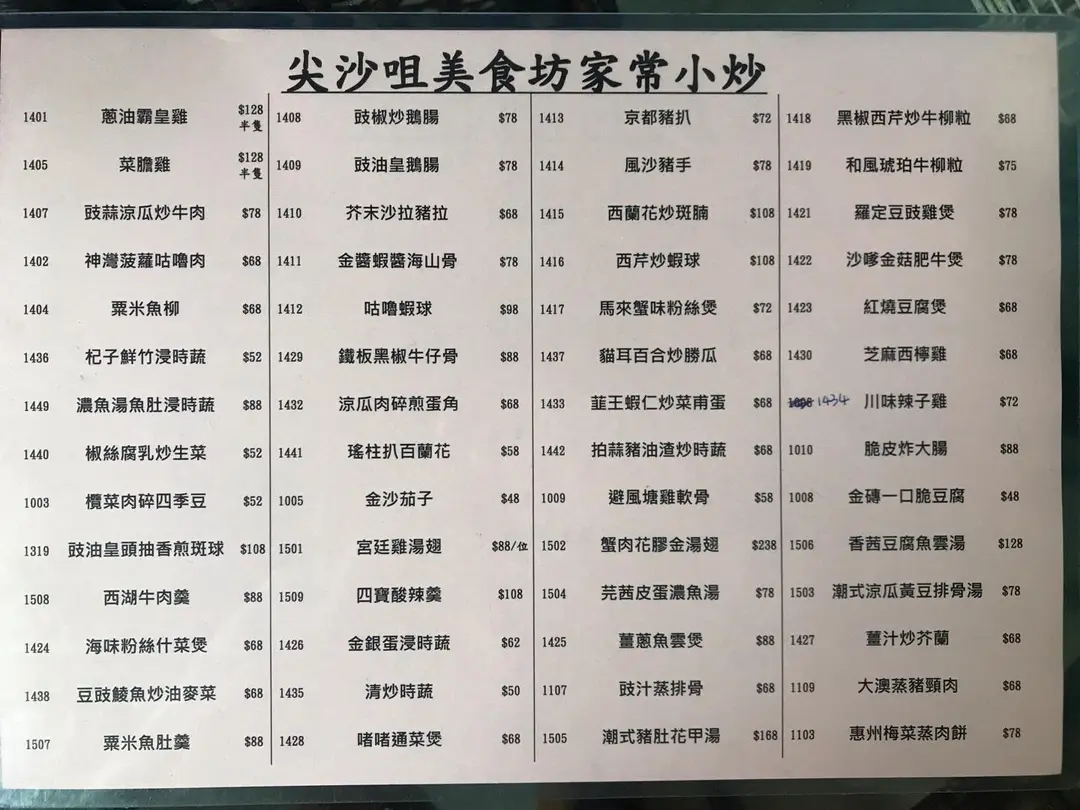 尖沙咀美食坊家常小炒
1401 蔥油霸皇雞 $128 半隻
1405 菜膽雞 $128 半隻
1407 豉蒜涼瓜炒牛肉 $78
1402 神灣菠蘿咕嚕肉 $68
1404 粟米魚柳 $68
1436 杞子鮮竹浸時蔬 $52
1449 濃魚湯魚肚浸時蔬 $88
1440 椒絲腐乳炒生菜 $52
1003 欖菜肉碎四季豆 $52
1319 豉油皇頭抽香煎斑球 $108
1508 西湖牛肉羹 $88
1424 海味粉絲什菜煲 $68
1438 豆豉鯪魚炒油麥菜 $68
1507 粟米魚肚羹 $88
1408 豉椒炒鵝腸 $78
1409 豉油皇鵝腸 $78
1410 芥末沙拉豬拉 $68
1411 金醬蝦醬海山骨 $78
1412 咕嚕蝦球 $98
1429 鐵板黑椒牛仔骨 $88
1432 涼瓜肉碎煎蛋角 $68
1441 瑤柱扒百蘭花 $58
1005 金沙茄子 $48
1501 宮廷雞湯翅 $88/位
1509 四寶酸辣羹 $108
1426 金銀蛋浸時蔬 $62
1435 清炒時蔬 $50
1428 啫啫通菜煲 $68
1413 京都豬扒 $72
1414 風沙豬手 $78
1415 西蘭花炒斑腩 $108
1416 西芹炒蝦球 $108
1417 馬來蟹味粉絲煲 $72
1437 貓耳百合炒勝瓜 $68
1433 韮王蝦仁炒菜甫蛋 $68
1442 拍蒜豬油渣炒時蔬 $68
1009 避風塘雞軟骨 $58
1502 蟹肉花膠金湯翅 $238
1504 芫茜皮蛋濃魚湯 $78
1425 薑蔥魚雲煲 $88
1107 豉汁蒸排骨 $68
1505 潮式豬肚花甲湯 $168
1418 黑椒西芹炒牛柳粒 $68
1419 和風琥珀牛柳粒 $75
1421 羅定豆豉雞煲 $78
1422 沙嗲金菇肥牛煲 $78
1423 紅燒豆腐煲 $68
1430 芝麻西檸雞 $68
1434 川味辣子雞 $72
1010 脆皮炸大腸 $88
1008 金磚一口脆豆腐 $48
1506 香茜豆腐魚雲湯 $128
1503 潮式涼瓜黃豆排骨湯 $78
1427 薑汁炒芥蘭 $68
1109 大澳蒸豬頸肉 $68
1103 惠州梅菜蒸肉餅 $78